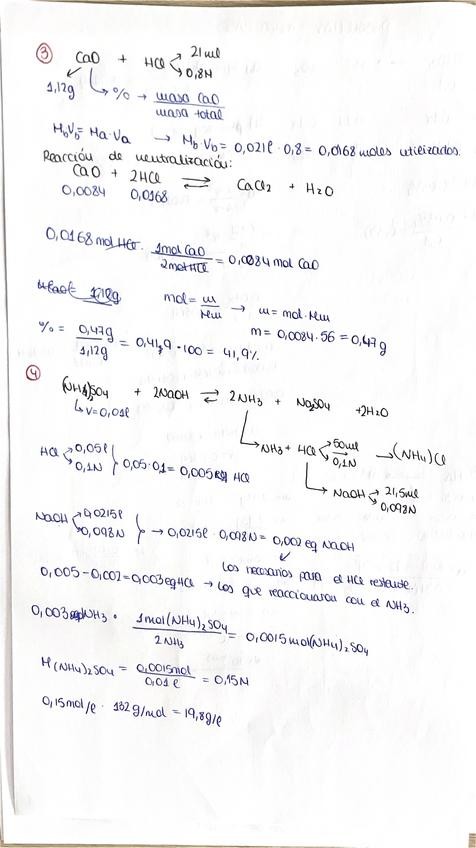 ③ CaO + HCl 21ml
0,8N
1,12g % → masa CaO / masa total
MbVb = Ma·Va → Mb·Vb = 0,021l · 0,8 = 0,0168 moles utilizados.
Reacción de neutralización:
CaO + 2HCl ⇌ CaCl2 + H2O
0,0084 0,0168
0,0168 mol HCl · 1mol CaO / 2mol HCl = 0,0084 mol CaO
mol = m / Mm → m = mol·Mm
m = 0,0084·56 = 0,47g
% = 0,47g / 1,12g = 0,419·100 = 41,9%
④ (NH4)2SO4 + 2NaOH ⇌ 2NH3 + Na2SO4 + 2H2O
V=0,01l
NH3 + HCl 50ml → (NH4)Cl
0,1N
HCl 0,05l
0,1N } 0,05·0,1 = 0,005 eq HCl
NaOH 21,5ml
0,098N
NaOH 0,0215l
0,098N } → 0,0215l · 0,098N = 0,002 eq NaOH
los necesarios para el HCl restante.
0,005 - 0,002 = 0,003 eq HCl → Los que reaccionaron con el NH3.
0,003 NH3 · 1mol (NH4)2SO4 / 2NH3 = 0,0015 mol (NH4)2SO4
M (NH4)2SO4 = 0,0015mol / 0,01l = 0,15N
0,15mol/l · 132g/mol = 19,8g/l